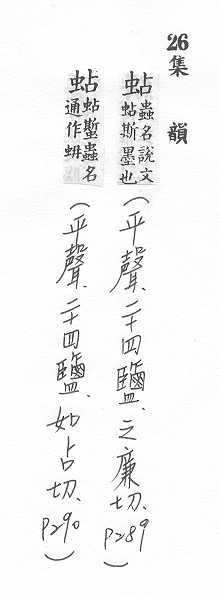 26
集韻
蛅蟲名說文
蛅斯墨也
（平聲、二十四鹽、之廉切、P289）
蛅蛅蟴蟲名
通作蚺
（平聲、二十四鹽、如占切、P290）